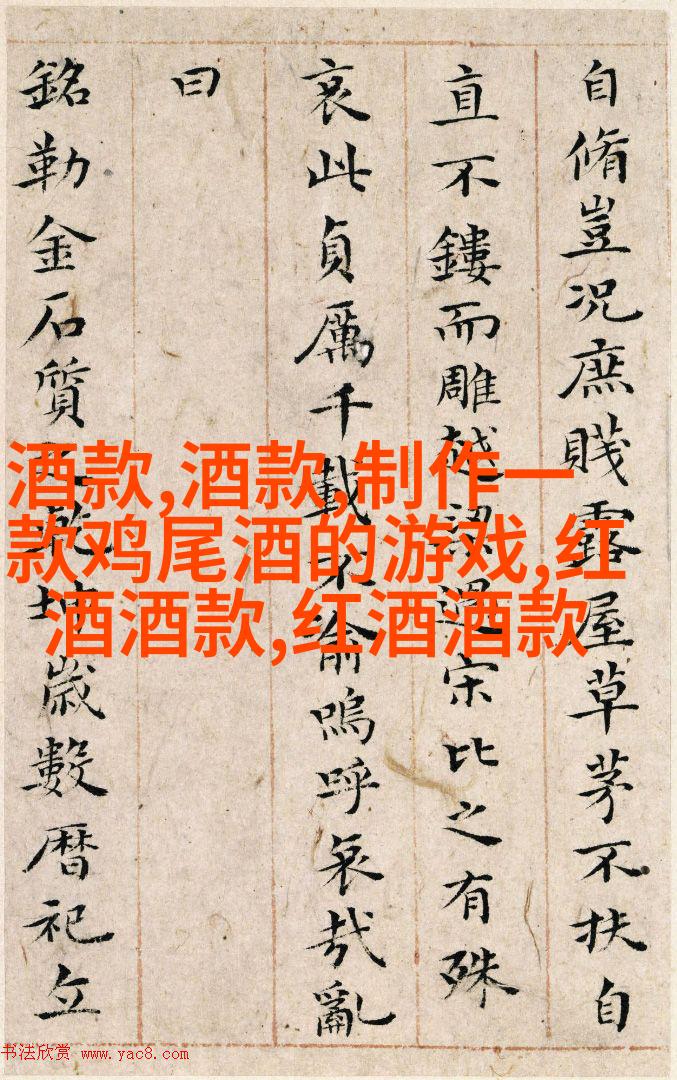 自脩豈况庶賎露屋草茅不扶自
直不鏤而雕越過宋比之有殊
哀此貞厲千載不渝嗚呼哀哉亂
曰
銘勒金石質乾坤歲數暦祀立
酒款,酒款,制作一
款鸡尾酒的游戏,红
酒酒款,红酒酒款
书法欣赏 www.yac8.com